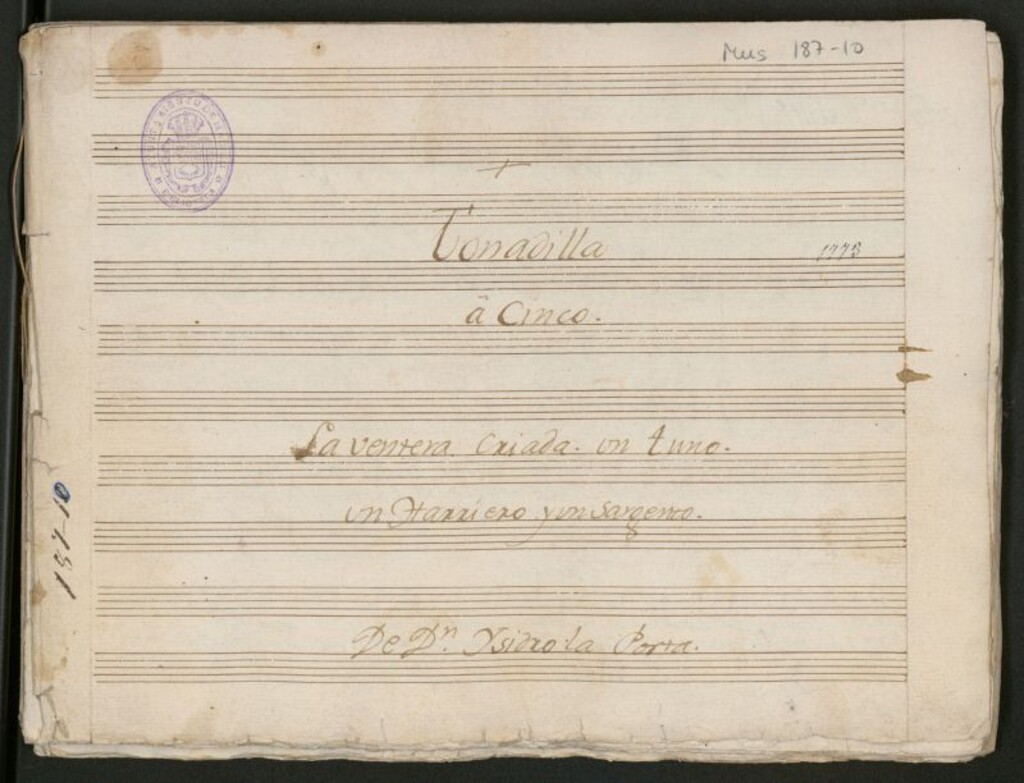 Mus 187-10
+
Tonadilla
1773
â Cinco.
La ventera Criada. un tuno.
un Harriero y un Sargento.
187-10
De Dn. Ysidro la Porta.